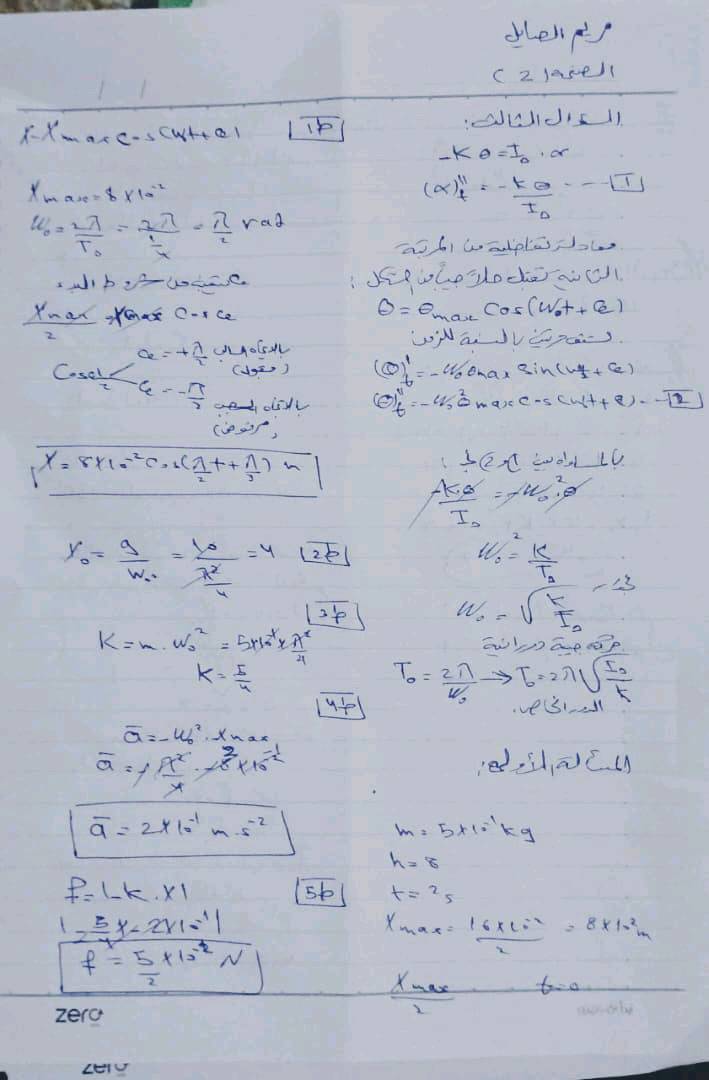 مريم الصايل
الصفحة (2)
السؤال الثالث:
-Kθ = I₀ . α
(α)ₜ'' = -kθ / I₀ ---- [1]
معادلة تفاضلية من المرتبة
الثانية تقبل حلاً جيبياً من الشكل:
θ = θmax cos(ω₀t + φ)
نشتق مرتين بالنسبة للزمن
(θ)ₜ' = -ω₀ θmax sin(ω₀t + φ)
(θ)ₜ'' = -ω₀² θmax cos(ω₀t + φ) --- [2]
بالمساواة بين
-k.θ / I₀ = -ω₀².θ
ω₀² = k / I₀
ω₀ = √(k / I₀)
حركة جيبية دورانية
T₀ = 2π / ω₀ → T₀ = 2π√(I₀ / k)
الدور الخاص.
المسألة الأولى:
m = 5×10⁻¹ kg
n = 8
t = 2s
Xmax = 16×10⁻² / 2 = 8×10⁻² m
Xmax / 2 t=0
X = Xmax cos(ωt + φ) [1b]
Xmax = 8×10⁻²
ω₀ = 2π / T₀ = 2π / 4 = π / 2 rad
من شروط البدء
Xmax / 2 = Xmax cos φ
φ = +π/3 بالاتجاه السالب
(مقبول)
cos φ = 1/2
φ = -π/3 بالاتجاه الموجب
(مرفوض)
X = 8×10⁻² cos(π/2 t + π/3) m
X₀ = g / ω₀² = 10 / (π²/4) = 4 [2b]
[3b]
K = m . ω₀² = 5×10⁻¹ × π²/4
K = 5/4
[4b]
ā = -ω₀² . Xmax
ā = -π²/4 . -8×10⁻²
ā = 2×10⁻¹ m.s⁻²
F = |-k . x| [5b]
|-5/4 × -2×10⁻¹|
F = 5/2 × 10⁻¹ N
zero
zero